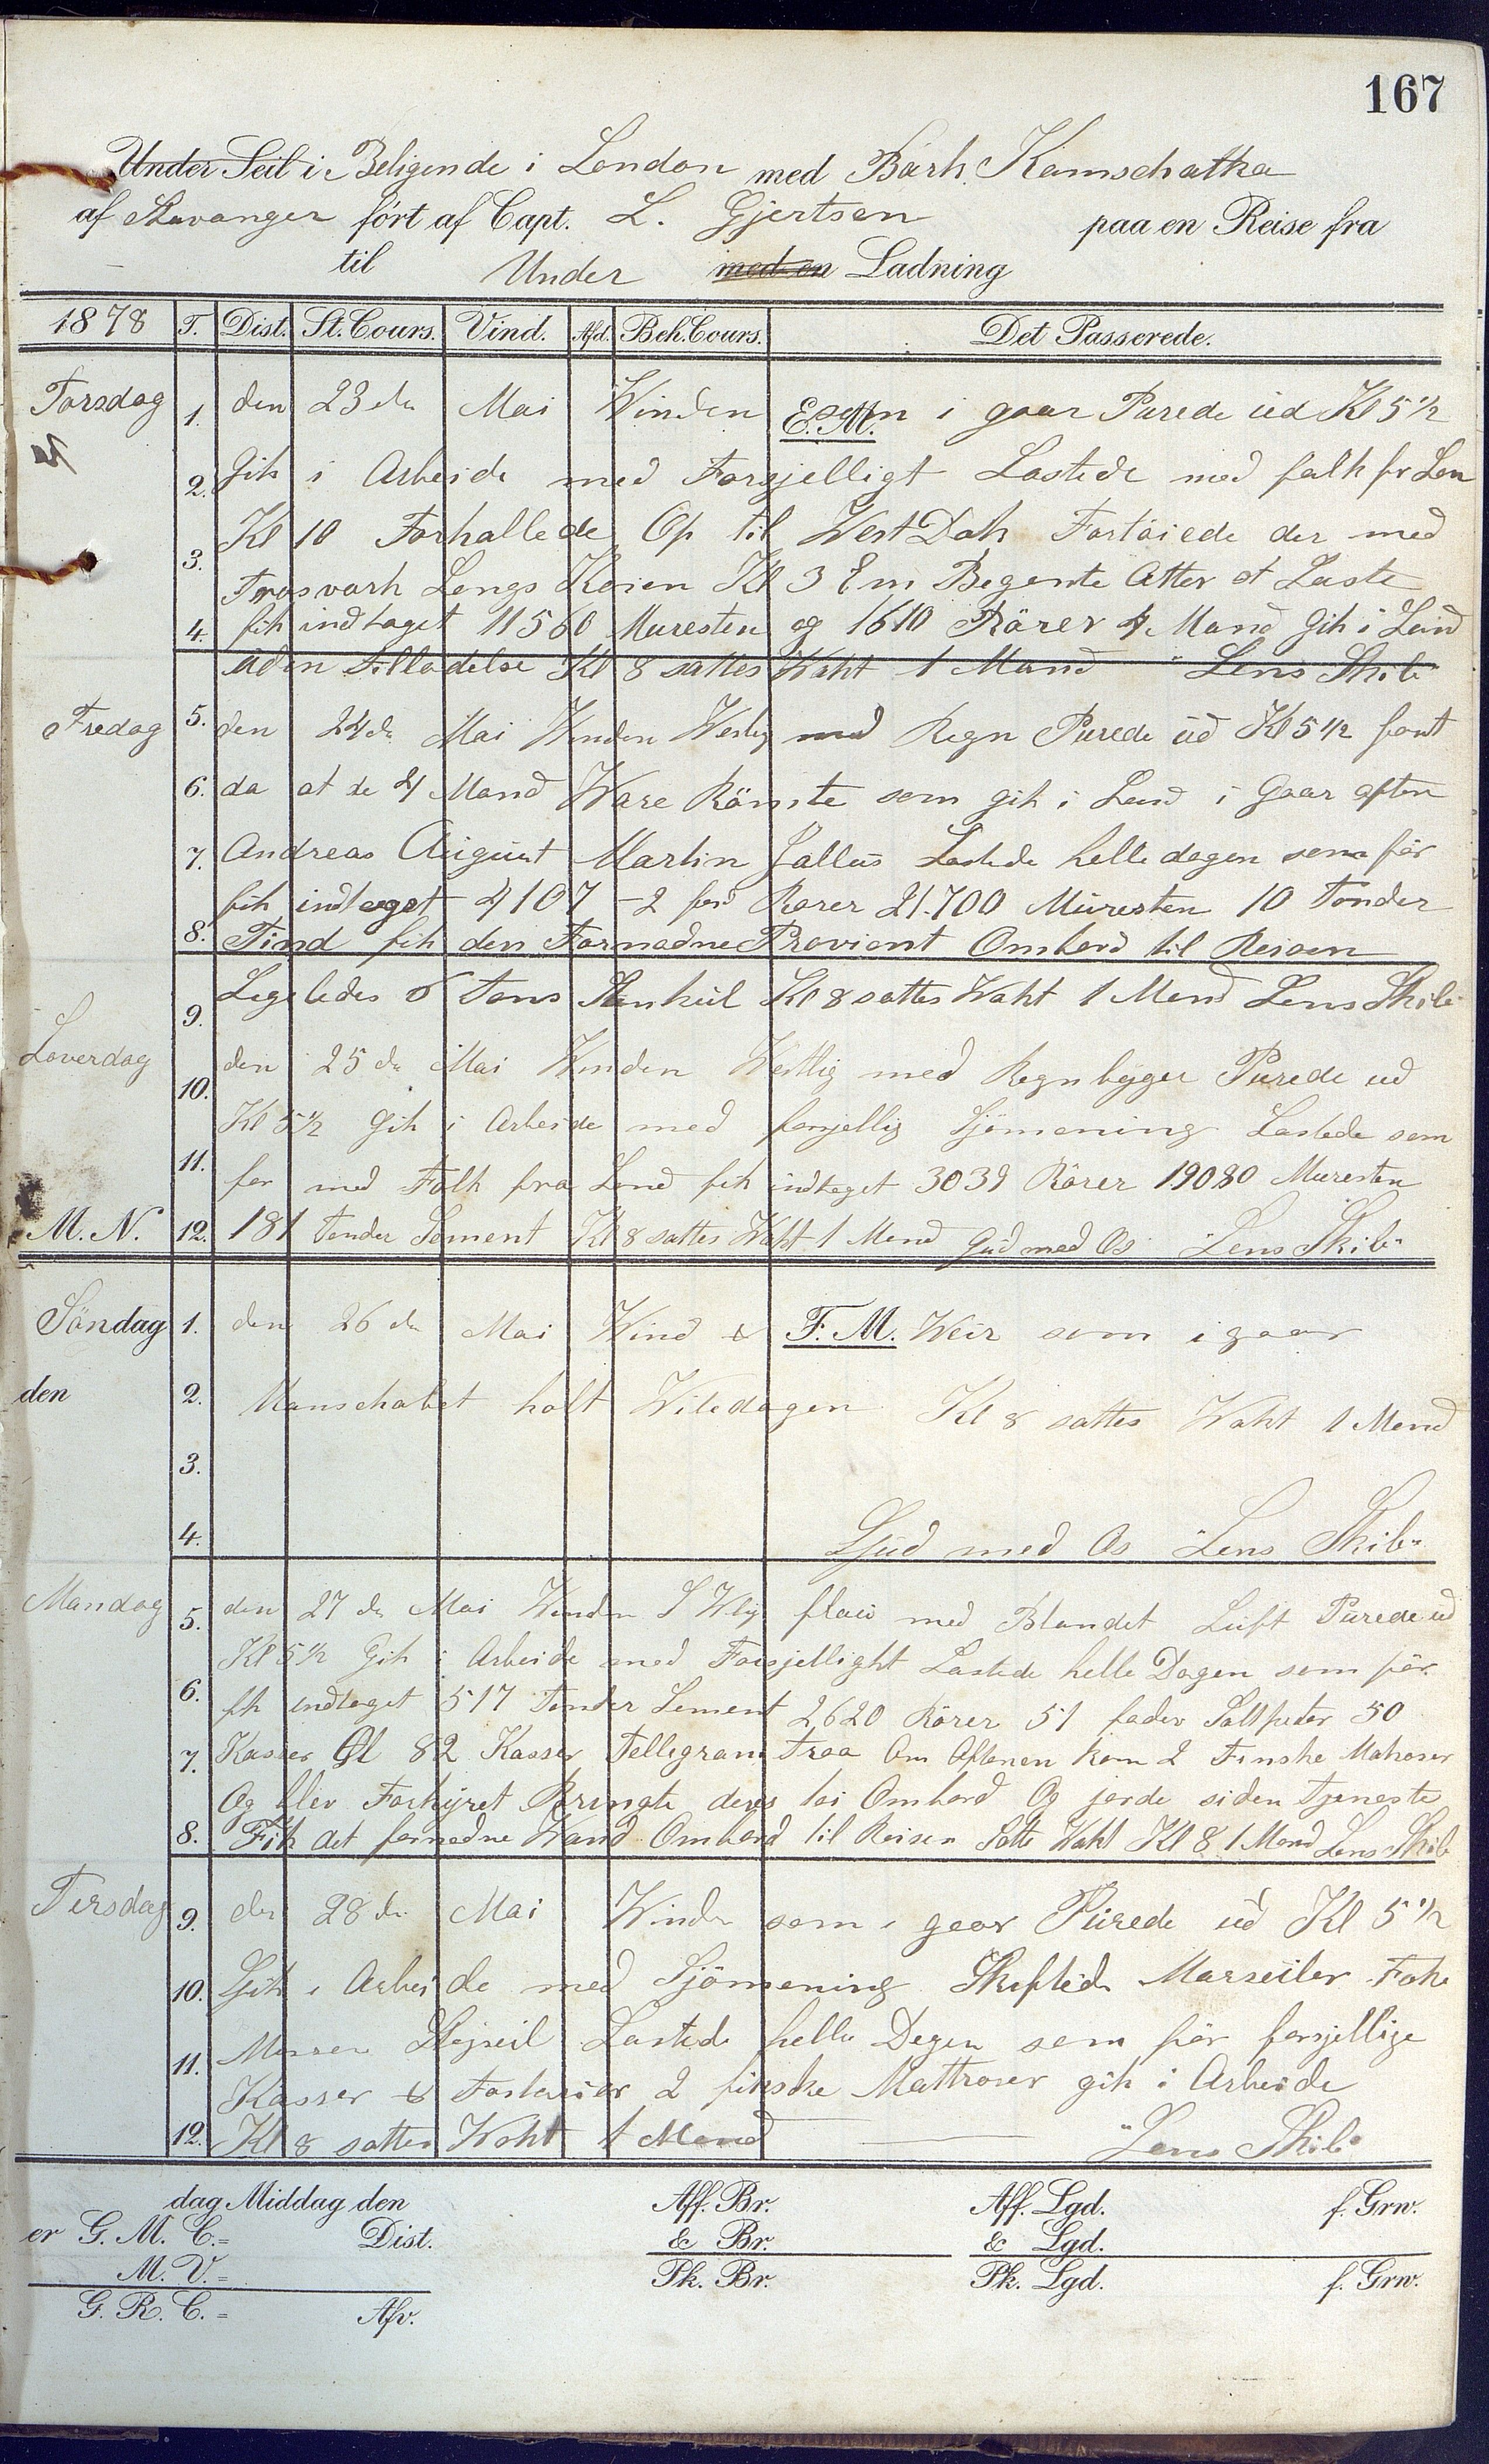 167
Under Seil i Beligende i London med Bark. Kamschatka
af Stavanger ført af Capt. L. Gjertsen paa en Reise fra
til Under med en Ladning
1878 T. Dist. St. Cours. Vind. Afd. Beh. Cours. Det Passerede.
Torsdag 1. den 23de Mai Winden E.M. som i gaar Purede ud Kl 5 1/2
2. Gik i Arbeide med Forsjelligt Lastede med falk fr Lan
Kl 10 Forhallede Op til West Dok Fortøiede der med
3. Trosvark Langs Kaien Kl 3 Em Begynte Atter at Laste
4. fik indtaget 11560 Muresten og 1610 Rörer 4 Mand Gik i Land
uden tilladelse Kl 8 sattes Vakt 1 Mand "Lens Skib"
Fredag 5. den 24de Mai Winden Westlig med Regn Purede ud Kl 5 1/2 fant
6. da at de 4 Mand Ware Römte som gik i Land i Gaar aften
7. Andreas August Martin Jallus Lastede helle dagen som för
fik indtaget 4107 - 2 fod Rörer 21.700 Muresten 10 Tönder
8. Tind fik den Fornødne Proviant Ombord til Reisen
9. Legeledes 6 Tons Stenkul Kl 8 sattes Wakt 1 Mand Lens Skib
Löverdag den 25de Mai Winden Westlig med Regnbyger Purede ud
10. Kl 5 1/2 Gik i Arbeide med forsjellig Sjömening Lastede som
11. för med Folk fra Land fik indtaget 3039 Rörer 19080 Muresten
M. N. 12. 181 Tönder Sement Kl 8 sattes Wakt 1 Mand Gud med Os "Lens Skib"
Söndag 1. den 26de Mai Wind & F. M. Weir som i gaar
den 2. Manschabet holt Wiledagen Kl 8 sattes Wakt 1 Mand
3.
4. Gud med Os "Lens Skib"
Mandag 5. den 27de Mai Winden S Wlig flau med Blandet Luft Purede ud
Kl 5 1/2 Gik i Arbeide med Forsjellight Lastede helle Dagen som för
6. fik indtaget 517 Tönder Sement 2620 Rörer 51 fader Saltpeter 50
7. Kasser Øl 82 Kasser Tellegram Traa Om Aftenen kom 2 Finske Matroser
Og blev Forhyret Bringte deres töi Ombord Og jorde siden Tjeneste
8. Fik det fornødne Wand Ombord til Reisen Satte Wakt Kl 8 1 Mand Lens Skib
Tersdag 9. den 28de Mai Winden som i gaar Purede ud Kl 5 1/2
10. Gik i Arbeide med Sjömening Skiftede Marseiler Foke
11. Mersen Stagseil Lastede helle Dagen som för forsjellige
Kasser & 2 finske Mattroser gik i Arbeide
12. Kl 8 sattes Wakt 1 Mand "Lens Skib"
dag Middag den Aff. Br. Aff. Lgd. f. Grw.
er G. M. C.= Dist. & Br. & Lgd.
M. V.= Pk. Br. Pk. Lgd. f. Grw.
G. R. C.= Afv.